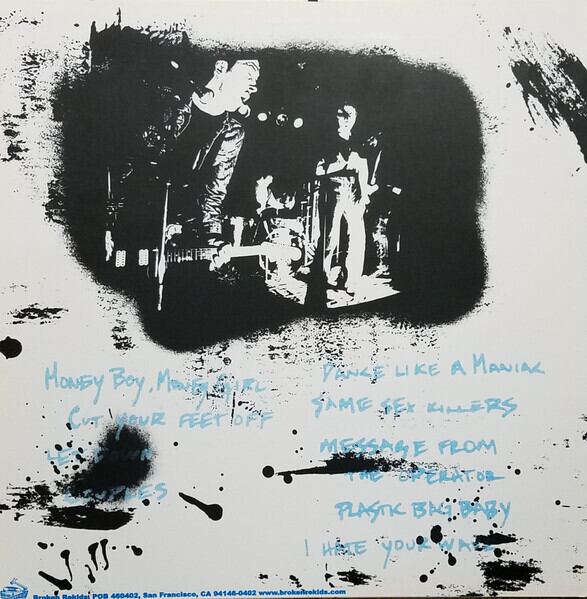 MONEY BOY, MONEY GIRL
CUT YOUR FEET OFF
LET DOWN
COUPLES
DANCE LIKE A MANIAC
SAME SEX KILLERS
MESSAGE FROM
THE OPERATOR
PLASTIC BAG BABY
I HATE YOUR
Broken Rekids: POB 460402, San Francisco, CA 94146-0402 www.brokenrekids.com